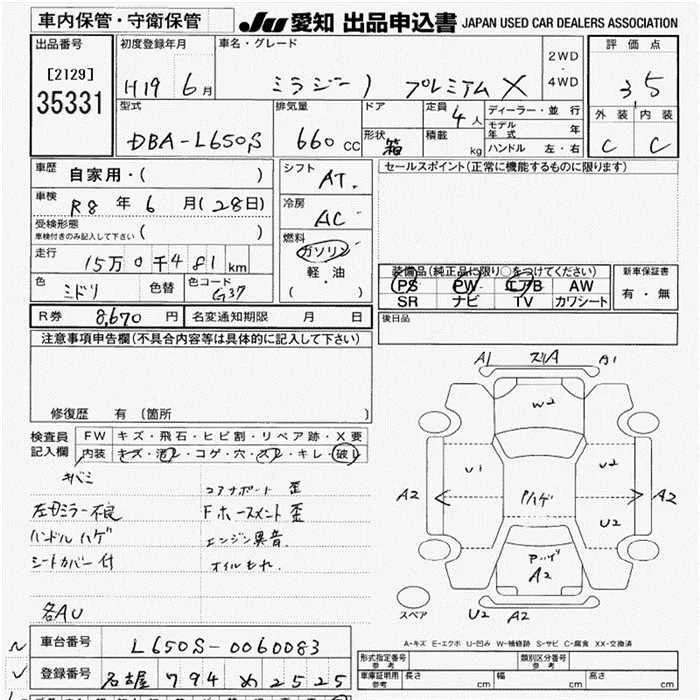 車内保管・守衛保管
JU 愛知 出品申込書 JAPAN USED CAR DEALERS ASSOCIATION
出品番号
[2129]
35331
初度登録年月
H19 6月
車名・グレード
ミラジーノ プレミアム X
2WD
・
4WD
評価点
3.5
外装 内装
C C
型式
DBA-L650S
排気量
660 cc
ドア
形状 箱
定員 4人
積載 kg
ディーラー・並行
モデル年式 年
ハンドル 左・右
車歴 自家用・( )
車検 R8年6月(28日)
受検形態
車検付きのみ記入して下さい ( )
走行
15万0千481km
色 ミドリ
色替
色コード G37
シフト AT.
冷房 AC
燃料
ガソリン
軽・油
( )
セールスポイント(正常に機能するものに限ります)
装備品(純正品に限り○をつけてください)
PS PW エアB AW
SR ナビ TV カワシート
新車保証書
有・無
R券 8,670円
名変通知期限 月 日
後日品
注意事項申告欄(不具合内容等は具体的に記入して下さい)
修復歴 有(箇所 )
検査員記入欄
FW キズ・飛石・ヒビ割・リペア跡・X要
内装 キズ・汚レ・コゲ・穴・スレ・キレ・破レ
キバミ
左ドミラー不良
ハンドルハゲ
シートカバー付
各AU
コアサポート歪
Fホースメント歪
エンジン異音.
オイルもれ.
A1 ズリA A1
W2
U1 U2
A2 Pハゲ A2
U2
Pハゲ
A2
スペア
U2 A2
A-キズ E-エクボ U-凹み W-補修跡 S-サビ C-腐食 XX-交換済
車台番号 L650S-0060083
登録番号 名古屋 794 め 2525
形式指定番号
参考
類別区分番号
参考
車庫証明用
参考
長さ cm
幅 cm
高さ cm